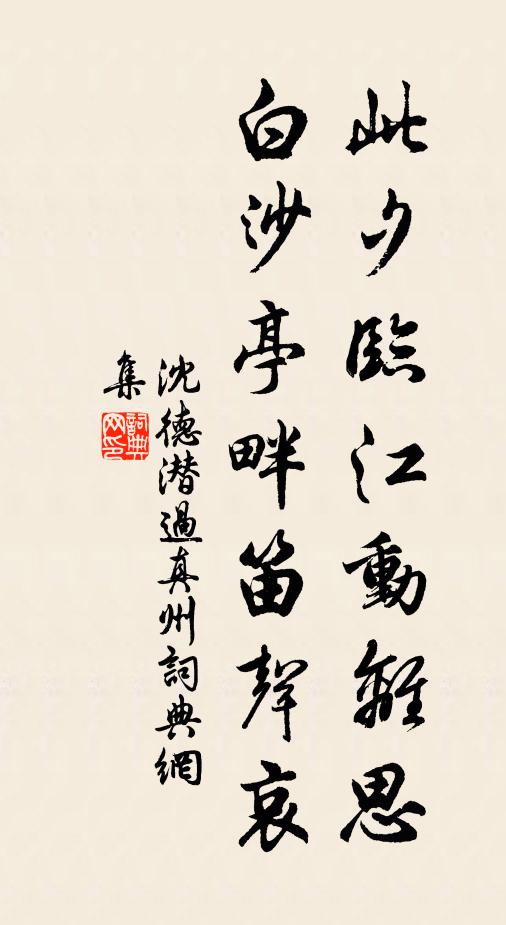 此夕臨江動離思
白沙亭畔笛聲哀
沈德潛過真州詞典網
集
詞典網印